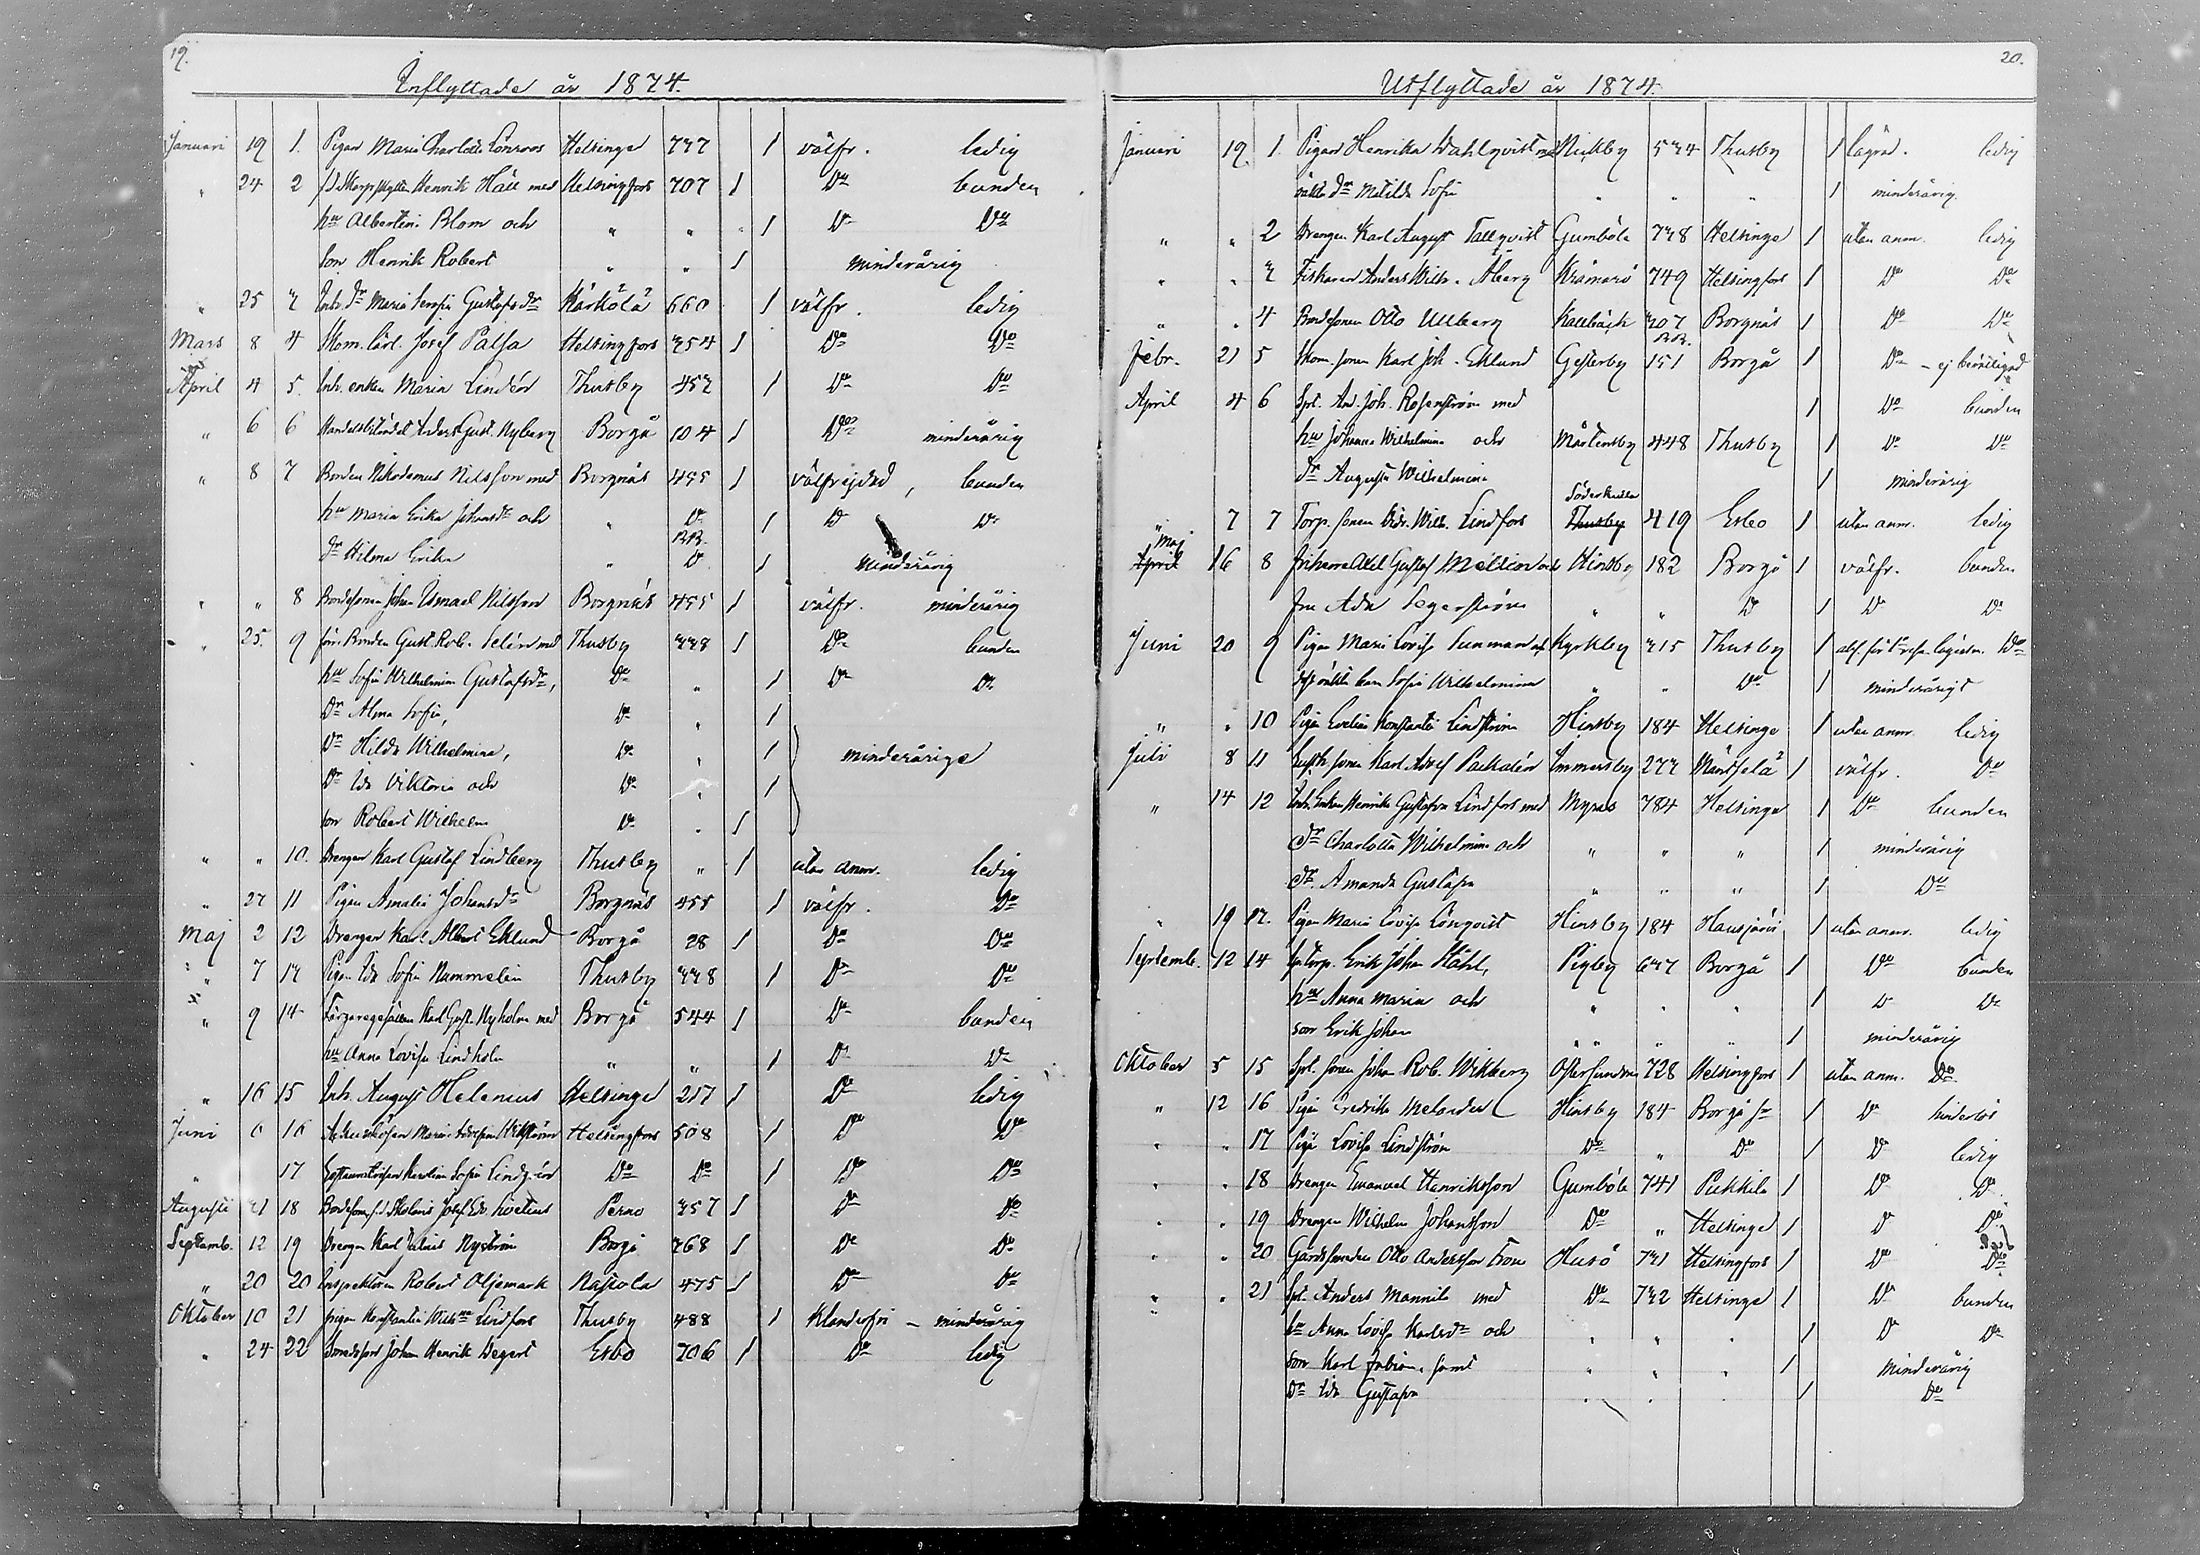 19.
Inflyttade år 1874.
Januari 19 1. Pigan Maria Charlotta Lönnroos Helsinge 737 1 välfr. ledig
" 24 2 f.d. Skarpskytten Henrik Häll med Helsingfors 707 1 Do bunden
hu Albertina Blom och " " 1 Do Do
son Henrik Robert " " 1 minderårig
" 25 3 Inh. dr Maria Serafia Gustafsdr Kärkölä 660 1 välfr. ledig
Mars 8 4 Skom. lärl. Josef Palsa Helsingfors 354 1 Do Do
April 4 5. Inh. enkan Maria Lindén Thusby 453 1 Do Do
" 6 6 Gust. Nyberg Borgå 104 1 Do minderårig
" 8 7 Bonden Nikodemus Nilsson med Borgnäs 455 1 välfrejdad, bunden
hu Maria Erika Johansdr och " Do 1 Do Do
dr Hilma Erika " Do 1 minderårig
" " 8 Bondesonen Johan Ismael Nilsson Borgnäs 455 1 välfr. minderårig
" 25. 9 förr. Bonden Gust. Rob. Selén med Thusby 338 1 Do bunden
hu Sofia Wilhelmina Gustafsdr, Do " 1 Do Do
Dr Alma Sofia, Do " 1
Dr Hilda Wilhelmina, Do " 1 minderårige
Dr Ida Viktoria och Do " 1
son Robert Wilhelm Do " 1
" " 10. Drengen Karl Gustaf Lindberg Thusby " 1 utan anm. ledig
" 27 11 Pigan Amalia Johansdr Borgnäs 455 1 välfr. Do
Maj 2 12 Drengen Karl Albert Eklund Borgå 28 1 Do Do
" 7 13 Pigan Ida Sofia Nammelin Thusby 338 1 Do Do
" 9 14 Färgaregesällen Karl Gust. Nyholm med Borgå 544 1 Do bunden
hu Anna Lovisa Lindholm " " 1 Do Do
" 16 15 Inh. August Helenius Helsinge 217 1 Do ledig
Juni 6 16 Maria Wikström Helsingfors 508 1 Do Do
" 17 Karolina Sofia Lindgrén Do Do 1 Do Do
Augusti 31 18 Josef Edv. Perno 357 1 Do Do
Septemb. 12 19 Drengen Karl Julius Nyström Borgå 768 1 Do Do
" 20 20 Inspektoren Robert Oljemark Nastola 475 1 Do Do
Oktober 10 21 pigan Konstantia Wilhna Lindfors Thusby 488 1 Klanderfri - minderårig
" 24 22 Johan Henrik Degert Esbo 706 1 Do ledig
20.
Utflyttade år 1874.
Januari 19. 1. Pigan Henrika Wahlqvist med Nickby 534 Thusby 1 lägrad. ledig
oäkta dr Matilda Sofia " " " 1 minderårig
" " 2 Drengen Karl August Tallqvist Gumböle 738 Helsinge 1 utan anm. ledig
" " 3 Fiskaren Anders Wilh. Åberg Krämarö 749 Helsingfors 1 Do Do
" " 4 Bondesonen Otto Ullberg Kallbäck 307 Borgnäs 1 Do Do
Febr. 21 5 Skom. sonen Karl Joh. Eklund Gesterby 151 Borgå 1 Do - ej beviljad
April 4 6 Spt. And. Joh. Rosenström med 1 Do bunden
hu Johanna Wilhelmina och Mårtensby 448 Thusby 1 Do Do
dr Augusta Wilhelmina 1 minderårig
Söderkulla
" 7 7 Torp. sonen Vidr. Wilh. Lindfors Thusby 419 Esbo 1 utan anm. ledig
Maj
April 16 8 friherre Axel Gustaf Mellin och Hindsby 182 Borgå 1 välfr. bunden
fru Ada Segerström " " Do 1 Do Do
Juni 20 9 Pigan Maria Lovisa Sunman och Kyrkby 315 Thusby 1 abs. för 1a resan lägersm. Do
oäkta barn Sofia Wilhelmina " " Do 1 minderårigt
" " 10 Pigan Evelina Konstantia Lindström Hinsby 184 Helsinge 1 utan anm. ledig
Juli 8 11 sonen Karl Adolf Palkalén Immersby 273 Mäntsälä 1 välfr. Do
" 14 12 Inh. Enkan Henrika Gustafva Lindfors med Myras 784 Helsinge 1 Do bunden
dr Charlotta Wilhelmina och " " " 1 minderårig
dr Amanda Gustafva " " " 1 Do
" 19 13. Pigan Maria Lovisa Lönqvist Hinsby 184 Hausjärvi 1 utan anm. ledig
Septemb. 12 14 Torp. Erik Johan Ståhl, Pigby 637 Borgå 1 Do bunden
hu Anna Maria och " " " 1 Do Do
son Erik Johan " " " 1 minderårig
Oktober 5 15 Spt. sonen Johan Rob. Wikberg Östersundom 728 Helsingfors 1 utan anm. Do
" 12 16 Pigan Fredrika Melander Hinsby 184 Borgå 1 Do hinderlös
" " 17 Piga Lovisa Lindström Do " Do 1 Do ledig
" " 18 Drengen Emanuel Henriksson Gumböle 741 Pukkila 1 Do Do
" " 19 Drengen Wilhelm Johansson Do " Helsinge 1 Do Do
" " 20 Otto Andersson Husö 731 Helsingfors 1 Do Do
" " 21 Spt. Anders Mannila med Do 732 Helsinge 1 Do bunden
hu Anna Lovisa Karlsdr och " " " 1 Do Do
son Karl Fabian, samt " " " 1 minderårig
Dr Ida Gustafva " " " 1 Do